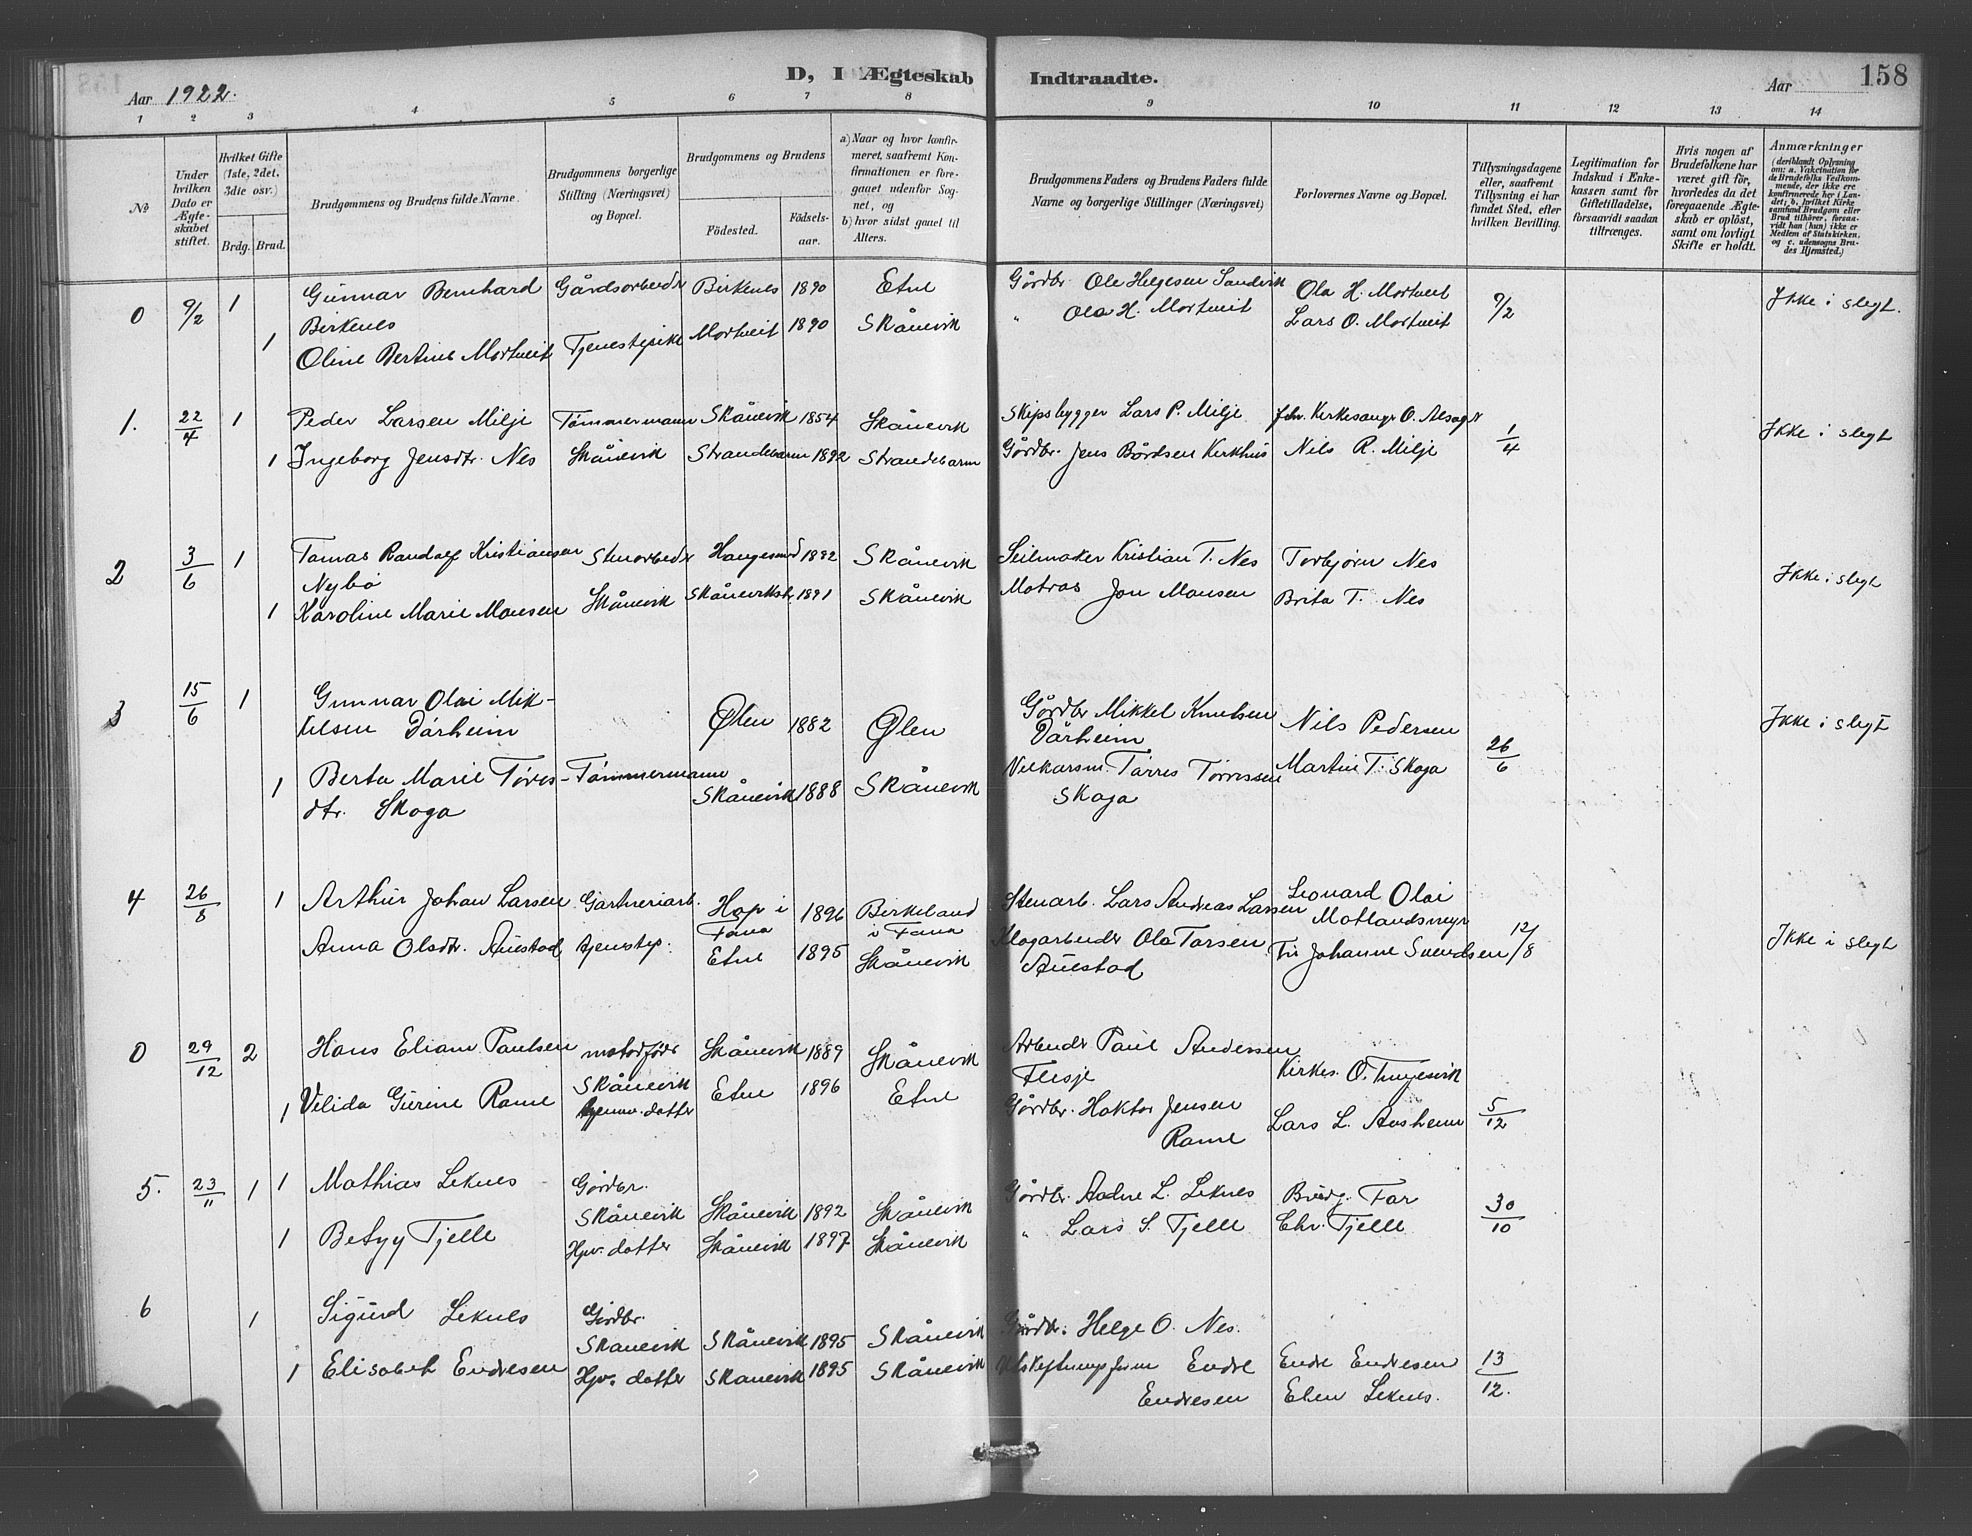 D, I Ægteskab Indtraadte.
158
Aar 1922.
Aar
1 2 3 4 5 6 7 8 9 10 11 12 13 14
№
Under hvilken Dato er Ægteskabet stiftet.
Hvilket Gifte (1ste, 2det, 3die osv.)
Brdg. Brud.
Brudgommens og Brudens fulde Navne.
Brudgommens borgerlige Stilling (Næringsvei) og Bopæl.
Brudgommens og Brudens
Fødested.
Fødselsaar.
a) Naar og hvor konfirmeret, saafremt Konfirmationen er foregaaet udenfor Sognet, og
b) hvor sidst gaaet til Alters.
Brudgommens Faders og Brudens Faders fulde Navne og borgerlige Stillinger (Næringsvei)
Forlovernes Navne og Bopæl.
Tillysningsdagene eller, saafremt Tillysning ei har fundet Sted, efter hvilken Bevilling.
Legitimation for Indskud i Enkekassen samt for Giftetilladelse, forsaavidt saadan tiltrænges.
Hvis nogen af Brudefolkene har været gift før, hvorledes da det foregaaende Ægteskab er opløst, samt om lovligt Skifte er holdt.
Anmærkninger
(deriblandt Oplysning om: a. Vakcination for de Brudefolks Vedkommende, der ikke ere konfirmerede her i Landet; b. hvilket Kirkesamfund Brudgom eller Brud tilhører, forsaavidt han (hun) ikke er Medlem af Statskirken, og c. udensogns Brudes Hjemsted.)
0 9/2 1 Gunnar Bernhard Gårdsarbeidr Birkenes 1890 Etne Gårdbr. Ole Helgesen Sandvik Ola H. Mortveit 9/2 Ikke i slegt.
Birkenes
1 Oline Bertine Mortveit Tjenestpike Mortveit 1890 Skånevik " Ola H. Mortveit Lars O. Mortveit
1. 22/4 1 Peder Larsen Milje Tømmermann Skånevik 1854 Skånevik Skipsbygger Lars P. Milje fhv. Kirkesangr O. Alsagr 1/4 Ikke i slegt
1 Ingeborg Jensdtr. Nes Skånevik Strandebarm 1892 Strandebarm Gårdbr. Jens Bårdsen Kirkhus Nils R. Milje
2 3/6 1 Tomas Randolf Kristiansen Stenarbedr Haugesund 1892 Skånevik Seilmaker Kristian T. Nes Torbjørn Nes Ikke i slegt
Nybø
1 Karoline Marie Monsen Skånevik Skånevikstr. 1891 Skånevik Matros Jon Monsen Brita T. Nes
3 15/6 1 Gunnar Olai Mik-
kelsen Dårheim Ølen 1882 Ølen Gårdbr Mikkel Knutsen Dårheim Nils Pedersen 26/6 Ikke i slegt
1 Berta Marie Tørres- Tømmermann Skånevik 1888 Skånevik Veikarsm. Tørres Tørressen Martin T. Skoga
dtr. Skoga Skoga
4 26/8 1 Arthur Johan Larsen Gartneriarb. Hop i Fana 1896 Birkeland i Fana Stenarb. Lars Andreas Larsen Leonard Olai Matlandsmyr 12/8 Ikke i slegt
Anna Olsdtr. Auestad tjenstep. Etne 1895 Skånevik Ola Tørsen Auestad Fr. Johanne Svendsen
0 29/12 2 Hans Eliam Paulsen motorfører Skånevik 1889 Skånevik Arbeidr Paul Andersen Flesje Kirkes. O. Tungesvik 5/12
Skånevik
1 Velida Gurine Rame hjemv. datter Etne 1896 Etne Gårdbr. Haktor Jensen Rame Lars L. Aosheim
5. 23/11 1 1 Mathias Leknes Gårdbr. Skånevik Skånevik 1892 Skånevik Gårdbr. Aadne L. Leknes Brudg. Far 30/10
1 Betzy Tjelle Hjv. datter Skånevik 1897 Skånevik " Lars S. Tjelle Chr. Tjelle
6 1 Sigurd Leknes Gårdbr. Skånevik Skånevik 1895 Skånevik Gårdbr. Helge O. Nes.
1 Elisabet Endresen Hjv. datter Skånevik 1895 Skånevik Endre Endresen Endre Endresen 13/12.
Elen Leknes.